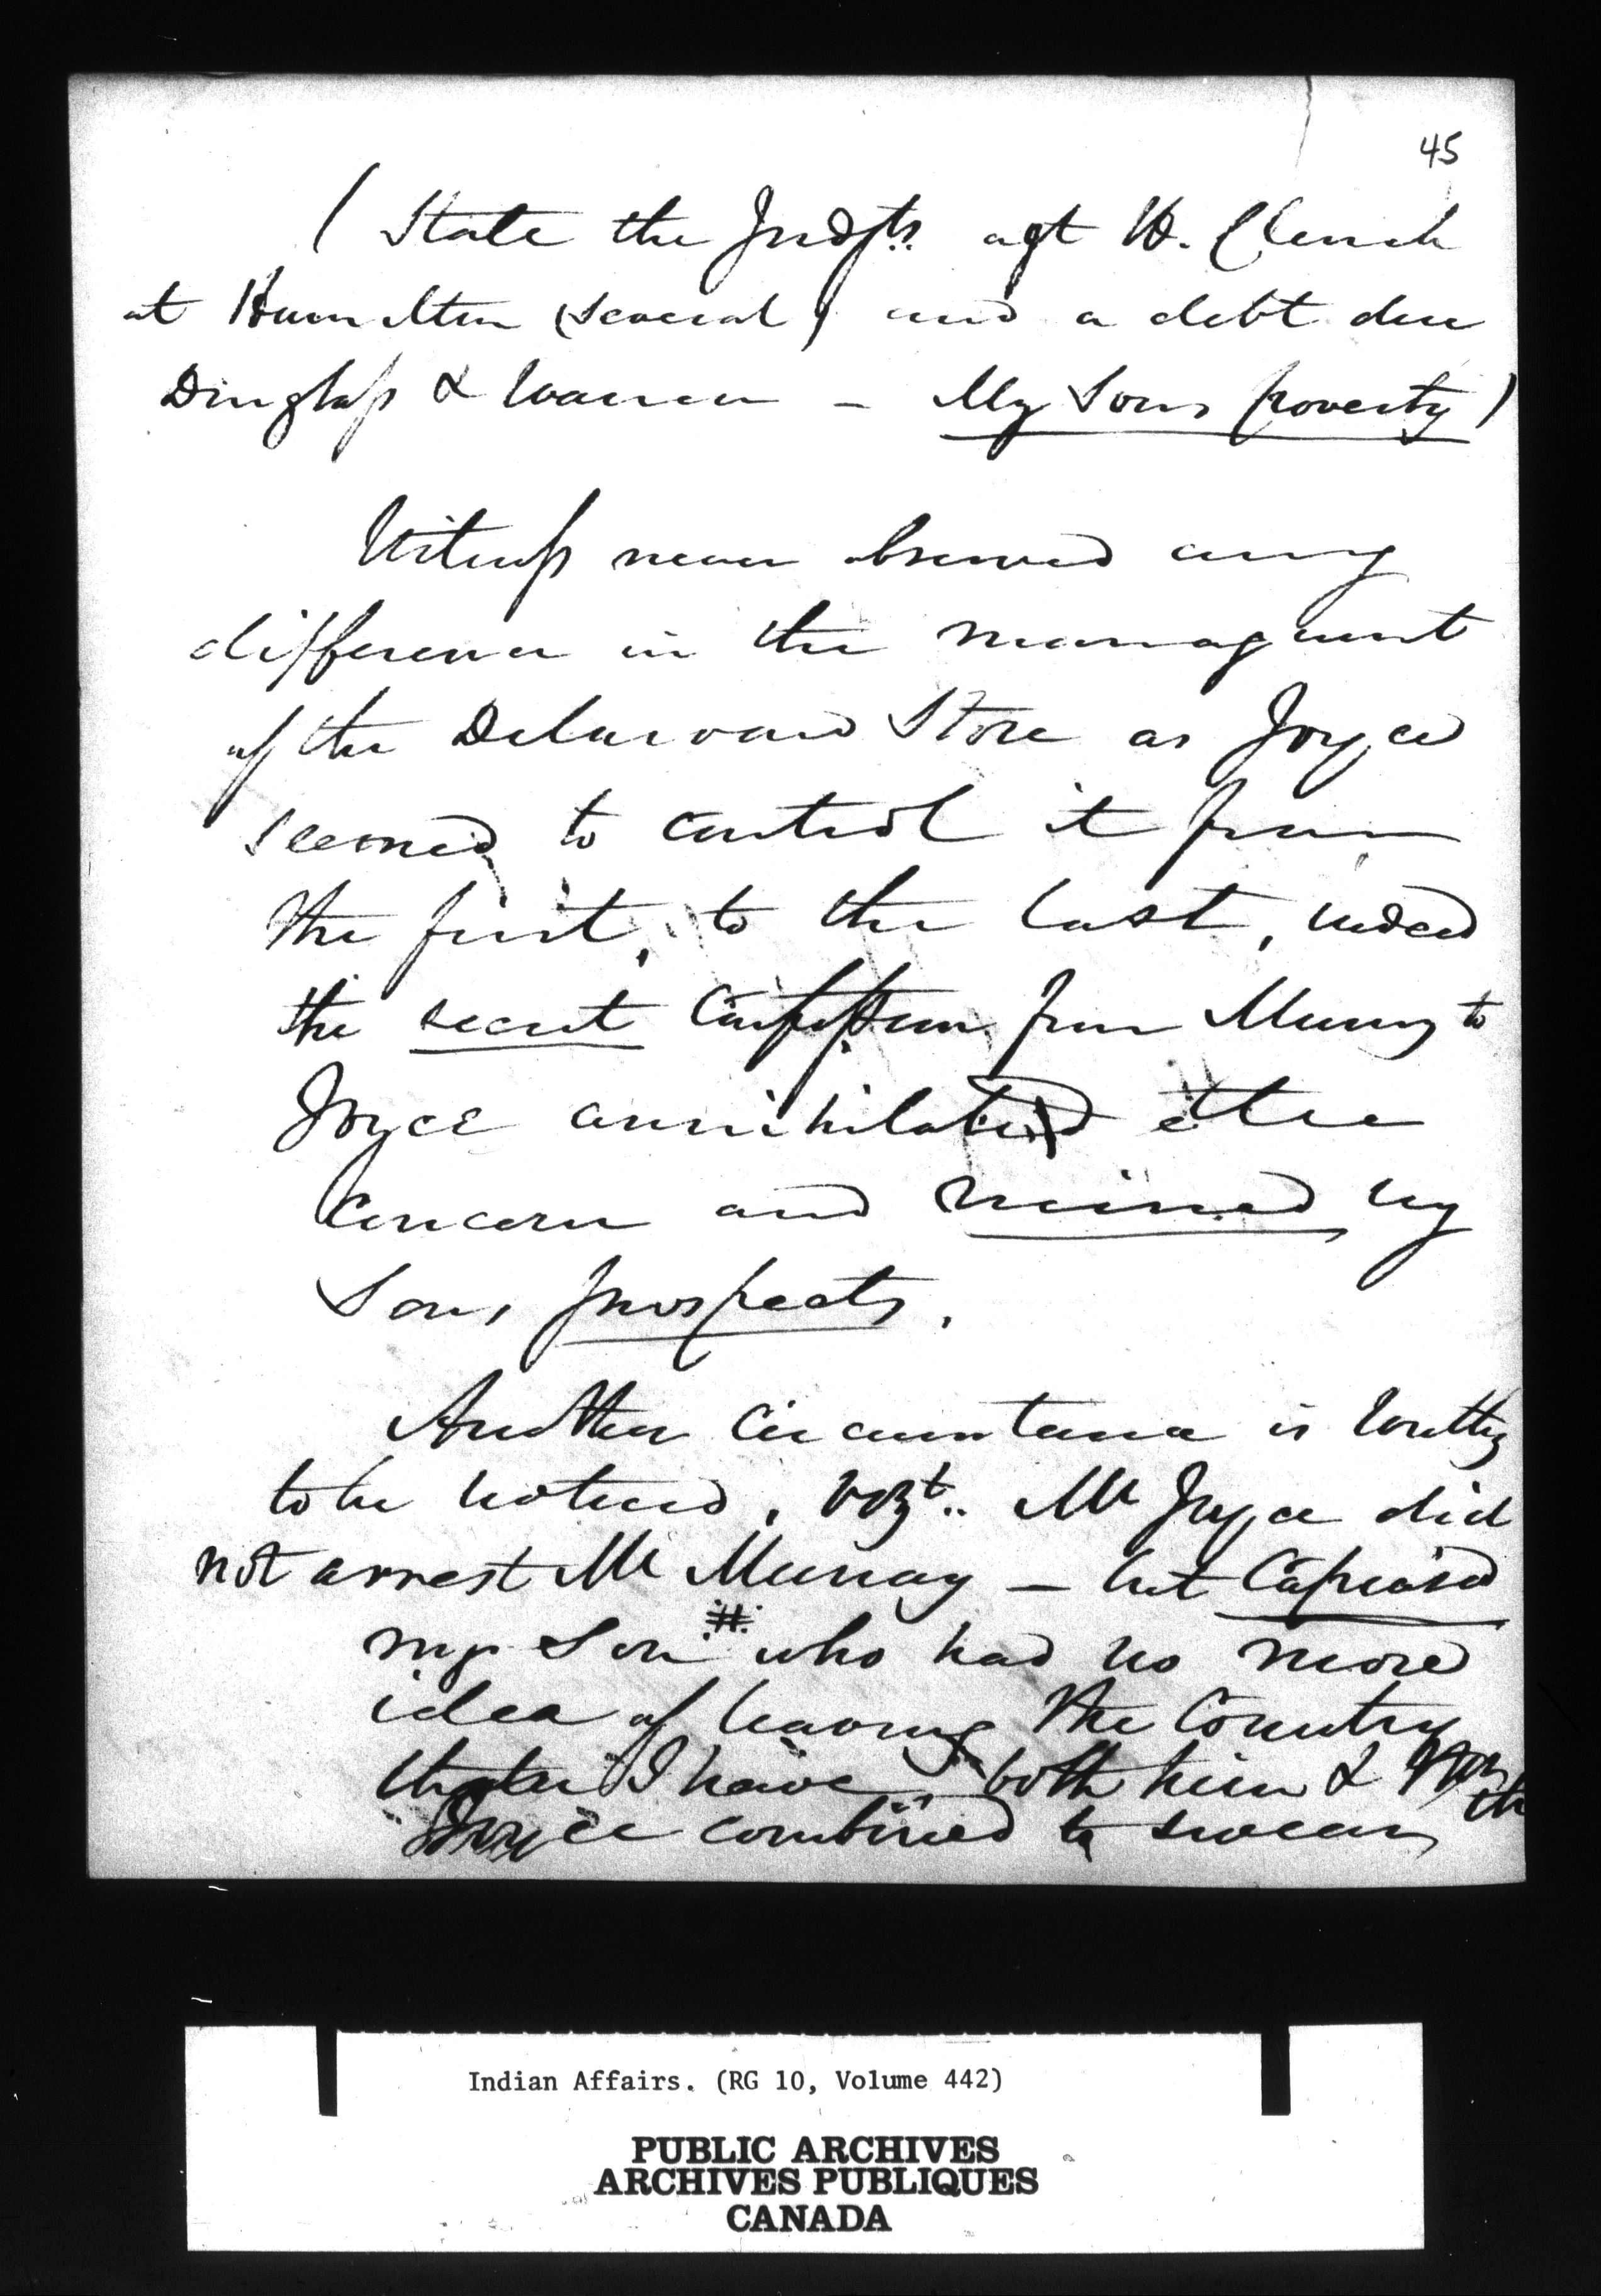 45
( State the Judgts. agt H. Clench
at Hamilton (several) and a debt due
& Warren – My Sons poverty )
Witness never observed any
difference in the managment
of the Delaware Store as Joyce
seemed to control it from
the first, to the last, indeed
the secret from Murray to
Joyce annihilated the
Concern and ruined my
Sons prospects.
Another Circumstance is worthy
to be noticed, vizt.. Mr Joyce did
not arrest Mr Murray – but Capiased
my Son # who had no more
idea of leaving the Country
than I have, both him &
Joyce combined to swear
Indian Affairs. (RG 10, Volume 442)
PUBLIC ARCHIVES
ARCHIVES PUBLIQUES
CANADA